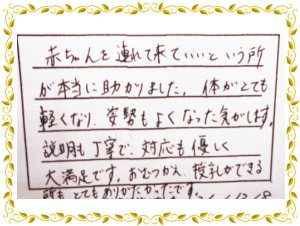 赤ちゃんを連れて来ていいという所
が本当に助かりました。体がとても
軽くなり、姿勢もよくなった気がします。
説明も丁寧で、対応も優しく
大満足です。おむつかえ、授乳ができる
所も、とてもありがたかったです。